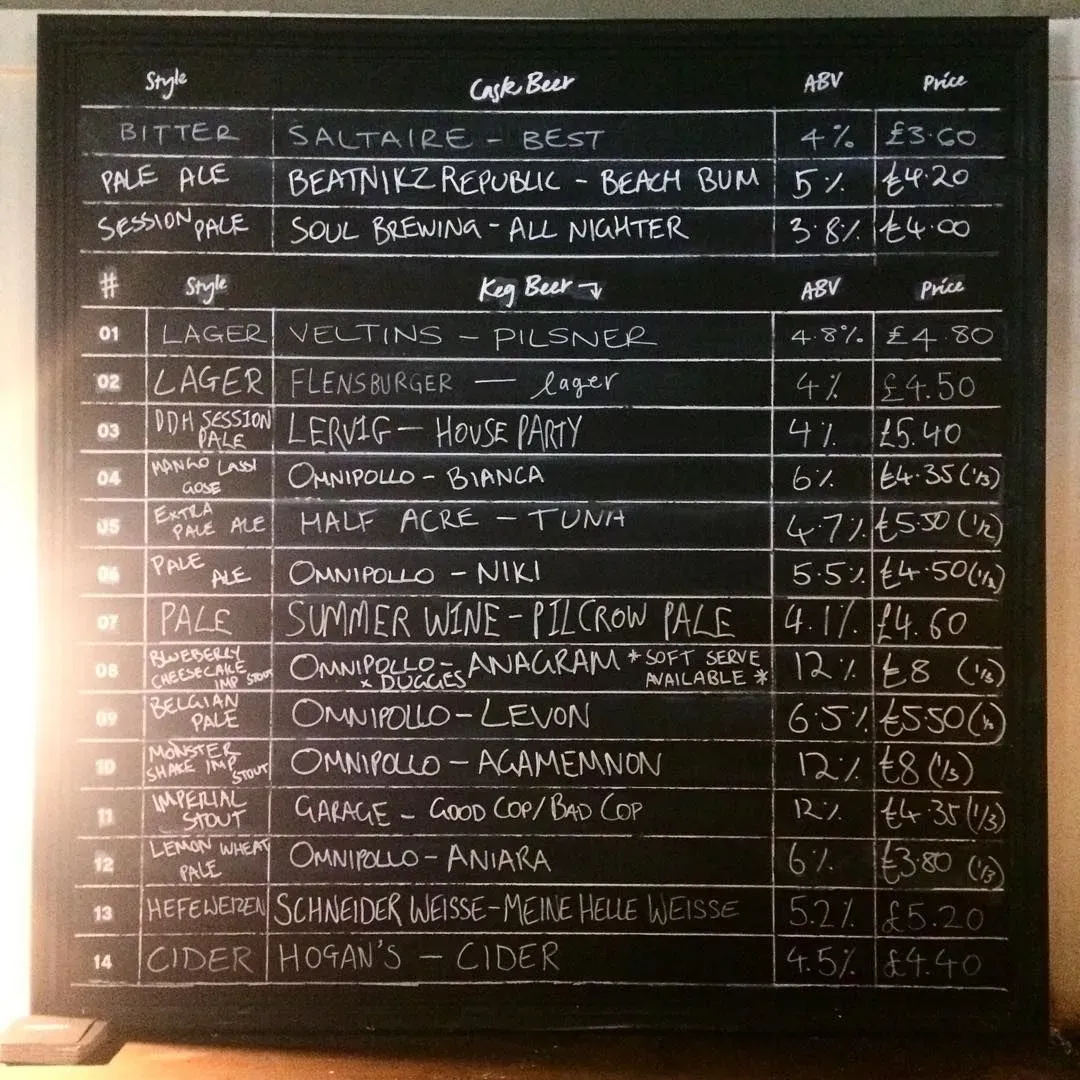 Style Cask Beer ABV Price
BITTER SALTAIRE - BEST 4% £3.60
PALE ALE BEATNIKZ REPUBLIC - BEACH BUM 5% £4.20
SESSION PALE SOUL BREWING - ALL NIGHTER 3.8% £4.00
# Style Keg Beer ABV Price
01 LAGER VELTINS - PILSNER 4.8% £4.80
02 LAGER FLENSBURGER — lager 4% £4.50
03 DDH SESSION PALE LERVIG - HOUSE PARTY 4% £5.40
04 MANGO LASSI GOSE OMNIPOLLO - BIANCA 6% £4.35 (1/3)
05 EXTRA PALE ALE HALF ACRE - TUNA 4.7% £5.50 (1/2)
06 PALE ALE OMNIPOLLO - NIKI 5.5% £4.50
07 PALE SUMMER WINE - PILCROW PALE 4.1% £4.60
08 BLUEBERRY CHEESECAKE IMP STOUT OMNIPOLLO - ANAGRAM * SOFT SERVE 12% £8 (1/3)
x DUGGES AVAILABLE *
09 BELGIAN PALE OMNIPOLLO - LEVON 6.5% £5.50
10 MONSTER SHAKE IMP STOUT OMNIPOLLO - AGAMEMNON 12% £8 (1/3)
11 IMPERIAL STOUT GARAGE - GOOD COP/BAD COP 12% £4.35 (1/3)
12 LEMON WHEAT PALE OMNIPOLLO - ANIARA 6% £3.80 (1/3)
13 HEFEWEIZEN SCHNEIDER WEISSE - MEINE HELLE WEISSE 5.2% £5.20
14 CIDER HOGAN'S - CIDER 4.5% £4.40